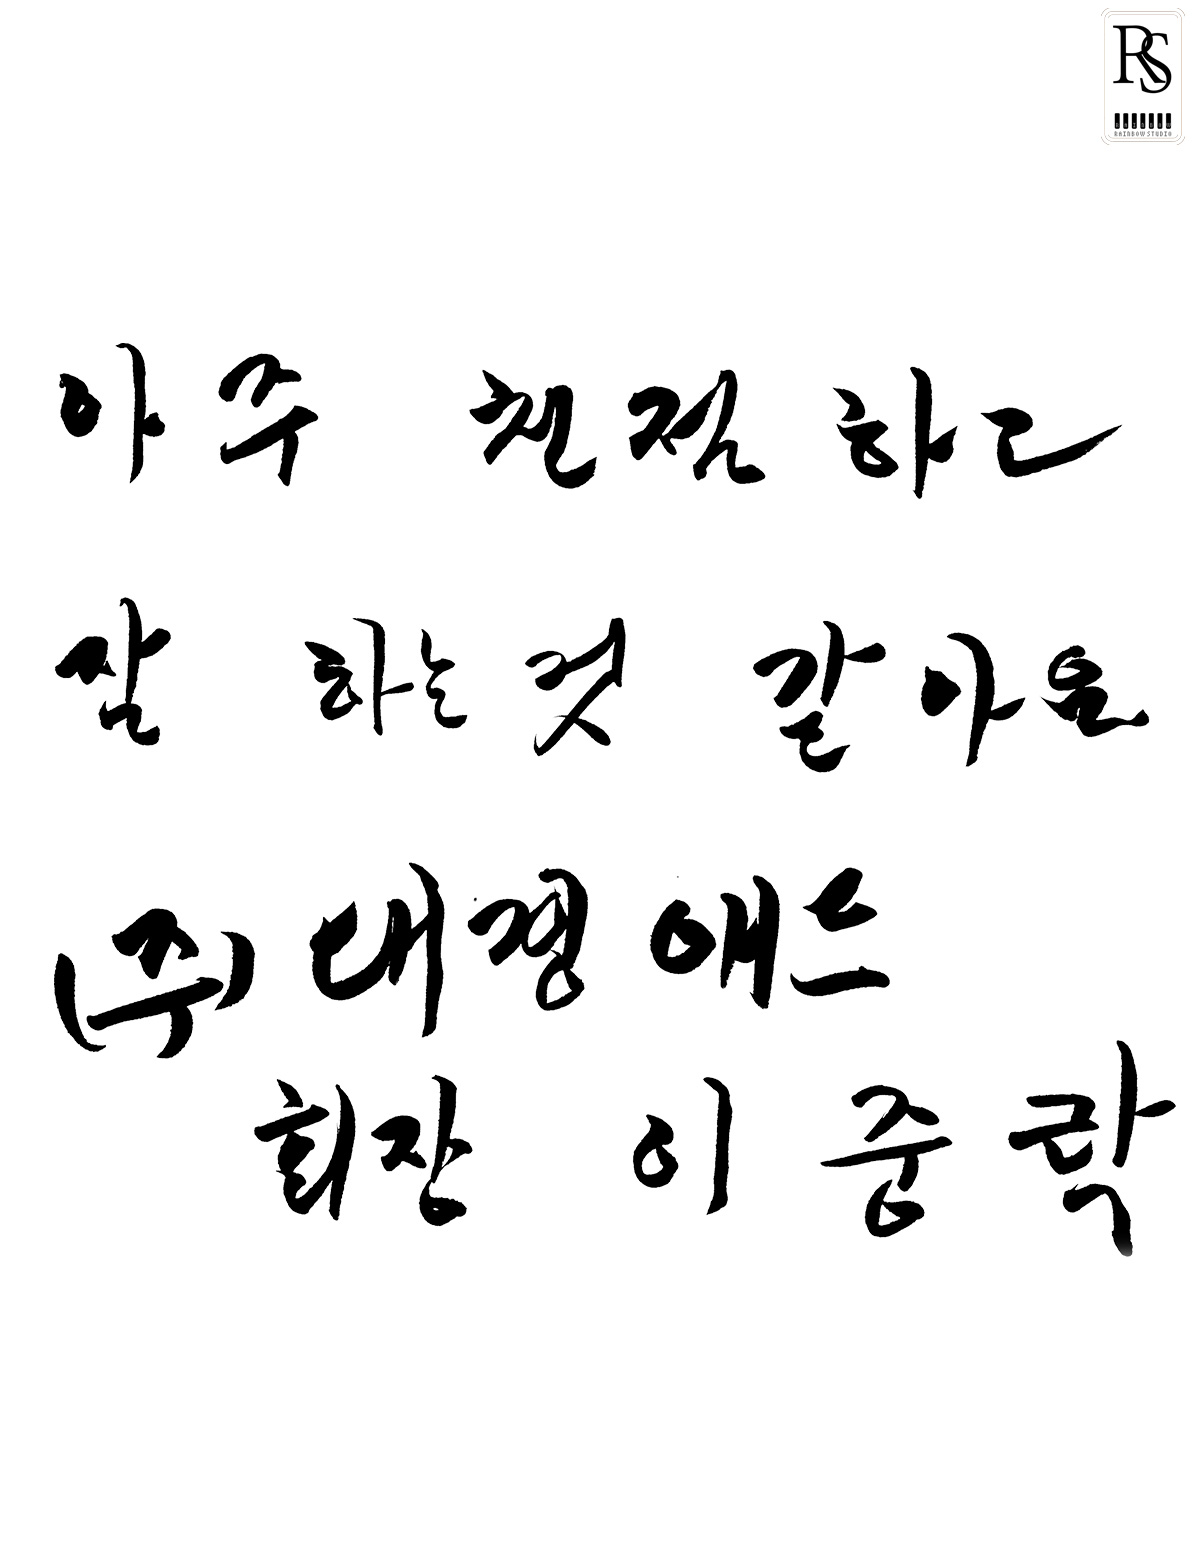 RS
RAINBOW STUDIO
아주 친절하다
잘 하는것 같아음
(주) 대경애스
회장 이 중 락